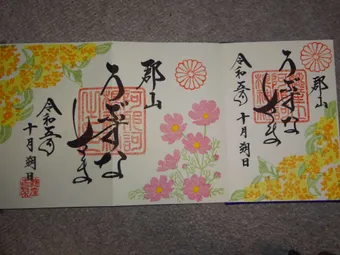 郡山
うぶすな
さま
令和五年
十月朔日
郡山
うぶすな
さま
令和五年
十月朔日